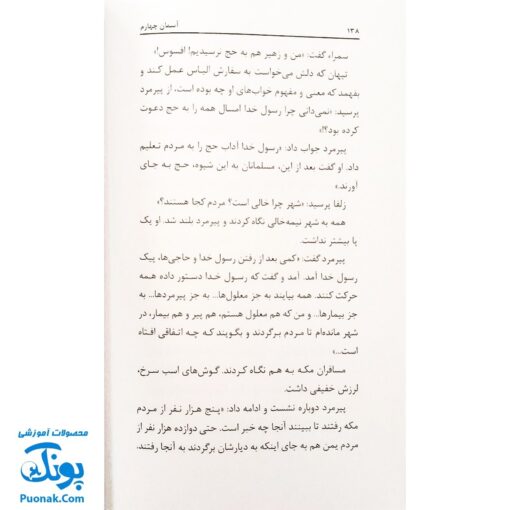 ۱۳۸
آسمان چهارم
سمراء گفت: «من و زهیر هم به حج نرسیدیم! افسوس!»
تیهان که دلش می‌خواست به سفارش الیاس عمل کند و
بفهمد که معنی و مفهوم خواب‌های او چه بوده است، از پیرمرد
پرسید: «نمی‌دانی چرا رسول خدا امسال همه را به حج دعوت
کرده بود؟!»
پیرمرد جواب داد: «رسول خدا آداب حج را به مردم تعلیم
داد. او گفت بعد از این، مسلمانان به این شیوه، حج به جای
آورند.»
زلفا پرسید: «شهر چرا خالی است؟ مردم کجا هستند؟»
همه به شهر نیمه‌خالی نگاه کردند و پیرمرد بلند شد. او یک
پا بیشتر نداشت.
پیرمرد گفت: «کمی بعد از رفتن رسول خدا و حاجی‌ها، پیک
رسول خدا آمد. آمد و گفت که رسول خدا دستور داده همه
حرکت کنند. همه بیایند به جز معلول‌ها... به جز پیرمردها... به
جز بیمارها... و من که هم معلول هستم، هم پیر و هم بیمار، در
شهر مانده‌ام تا مردم برگردند و بگویند که چه اتفاقی افتاده
است...»
مسافران مکه به هم نگاه کردند. گوش‌های اسب سرخ،
لرزش خفیفی داشت.
پیرمرد دوباره نشست و ادامه داد: «پنج هزار نفر از مردم
مکه رفتند تا ببینند آنجا چه خبر است. حتی دوازده هزار نفر از
مردم یمن هم به جای اینکه به دیارشان برگردند به آنجا رفتند.
محصولات آموزشی
پونک
Puonak.Com